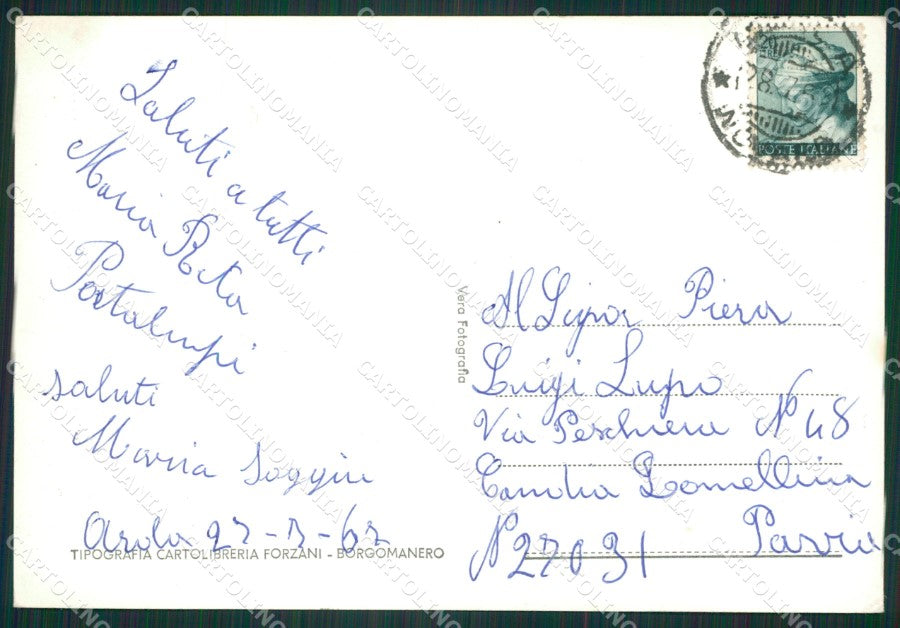 Saluti a tutti
Maria Rita
Portalupi
saluti
Maria
Arola 27-7-67
TIPOGRAFIA CARTOLIBRERIA FORZANI - BORGOMANERO
Vera Fotografia
POSTE ITALIANE
Al Signor Piera
Luigi Lupo
Via Peschiera N 48
Candia Lomellina
N 27031 Pavia
CARTOLINOMANIA